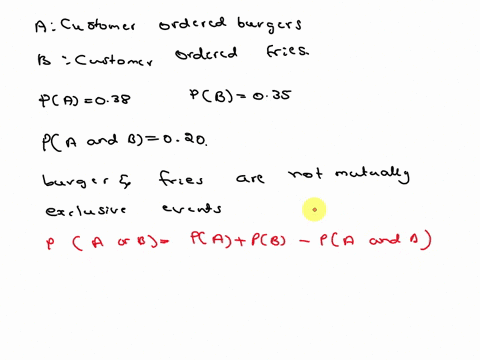 A: Customer ordered burgers
B : Customer ordered fries.
P(A) = 0.38 P(B) = 0.35
P(A and B) = 0.20.
burger & fries are not mutually
exclusive events
P (A or B) = P(A) + P(B) - P(A and B)